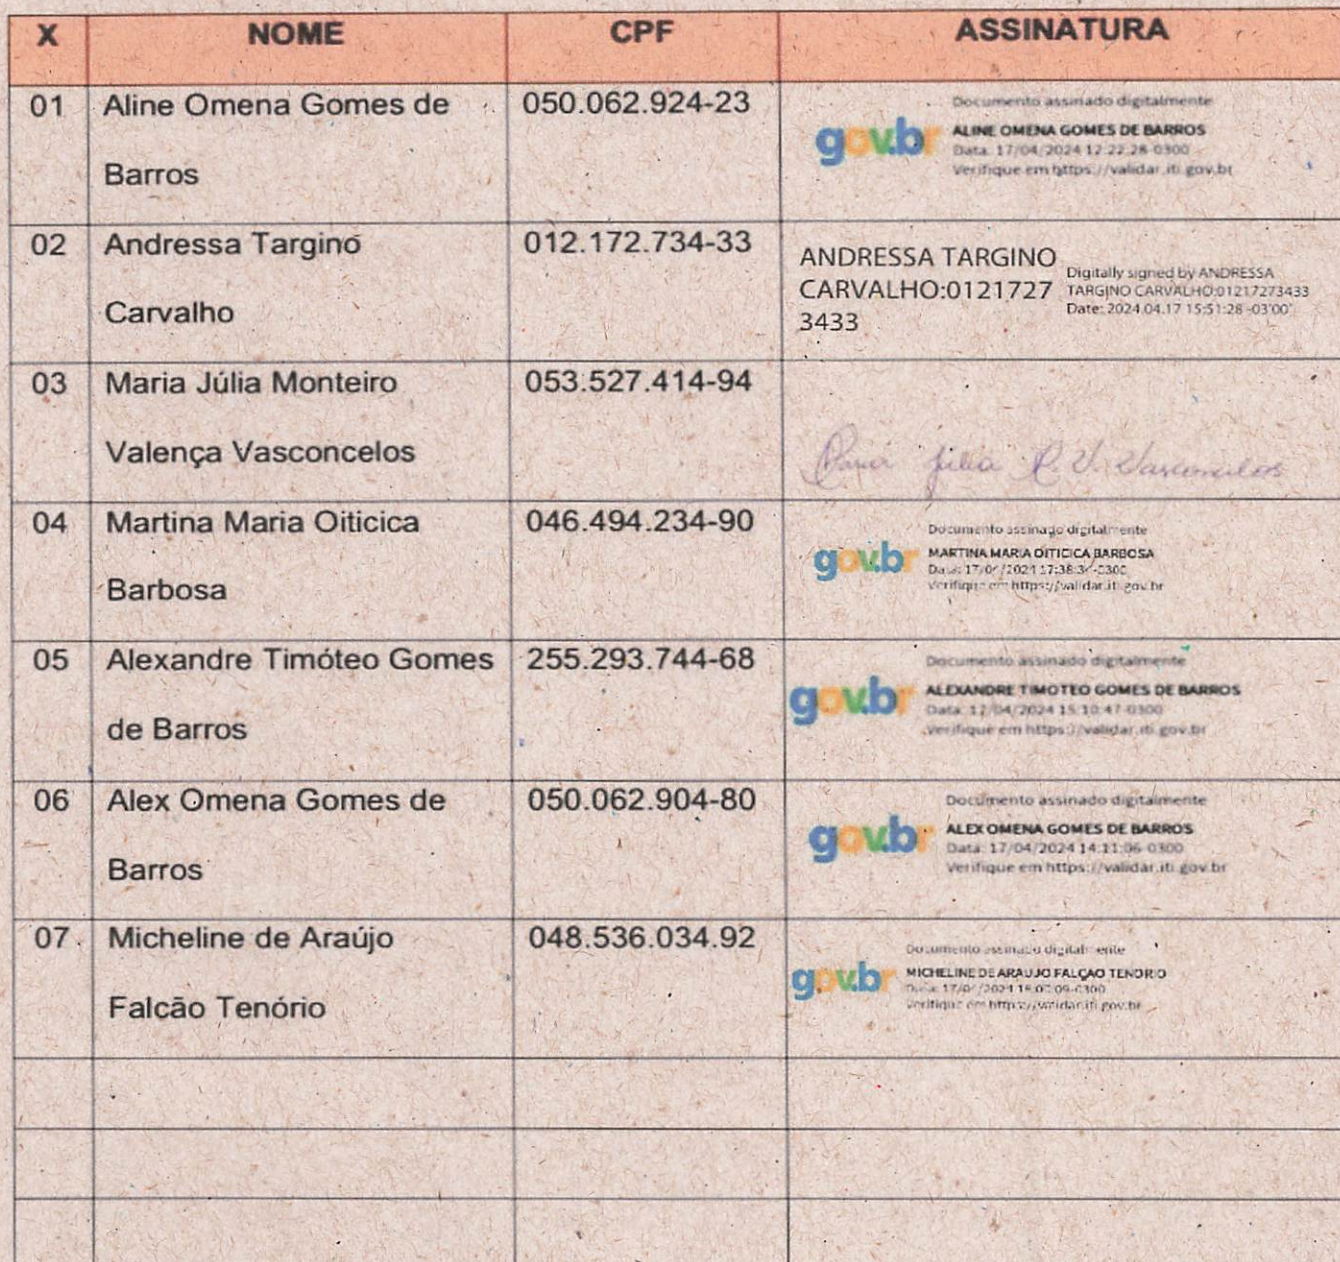 X NOME CPF ASSINATURA
01 Aline Omena Gomes de 050.062.924-23
Barros
gov.br
Documento assinado digitalmente
ALINE OMENA GOMES DE BARROS
Data: 17/04/2024 12:22:28-0300
Verifique em https://validar.iti.gov.br
02 Andressa Targino 012.172.734-33
Carvalho
ANDRESSA TARGINO
CARVALHO:0121727
3433
Digitally signed by ANDRESSA
TARGINO CARVALHO:01217273433
Date: 2024.04.17 15:51:28 -03'00'
03 Maria Júlia Monteiro 053.527.414-94
Valença Vasconcelos
Maria Júlia V. Vasconcelos
04 Martina Maria Oiticica 046.494.234-90
Barbosa
gov.br
Documento assinado digitalmente
MARTINA MARIA OITICICA BARBOSA
Data: 17/04/2024 17:38:34-0300
Verifique em https://validar.iti.gov.br
05 Alexandre Timóteo Gomes 255.293.744-68
de Barros
gov.br
Documento assinado digitalmente
ALEXANDRE TIMOTEO GOMES DE BARROS
Data: 17/04/2024 15:10:47-0300
Verifique em https://validar.iti.gov.br
06 Alex Omena Gomes de 050.062.904-80
Barros
gov.br
Documento assinado digitalmente
ALEX OMENA GOMES DE BARROS
Data: 17/04/2024 14:11:06-0300
Verifique em https://validar.iti.gov.br
07 Micheline de Araújo 048.536.034.92
Falcão Tenório
gov.br
Documento assinado digitalmente
MICHELINE DE ARAUJO FALCAO TENORIO
Data: 17/04/2024
Verifique em https://validar.iti.gov.br